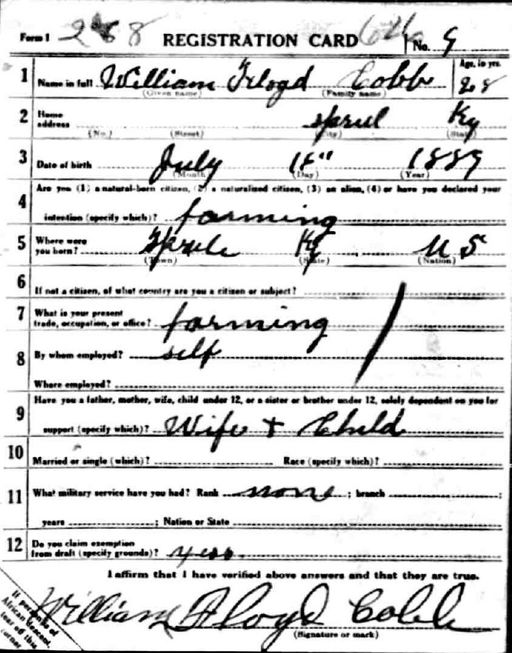 Form 1 268 REGISTRATION CARD No. 9
1 Name in full William Floyd Cobb Age, in yrs. 28
(Given name) (Family name)
2 Home address Sprul Ky
(No.) (Street) (City) (State)
3 Date of birth July 18" 1889
(Month) (Day) (Year)
Are you (1) a natural-born citizen, (2) a naturalized citizen, (3) an alien, (4) or have you declared your
4 intention (specify which)? farming
5 Where were you born? Sprule Ky U S
(Town) (State) (Nation)
6 If not a citizen, of what country are you a citizen or subject?
7 What is your present trade, occupation, or office? farming
8 By whom employed? self
Where employed?
Have you a father, mother, wife, child under 12, or a sister or brother under 12, solely dependent on you for
9 support (specify which)? Wife + Child
10 Married or single (which)? Race (specify which)?
11 What military service have you had? Rank none ; branch ;
years ; Nation or State
12 Do you claim exemption from draft (specify grounds)? yess
I affirm that I have verified above answers and that they are true.
William Floyd Cobb
(Signature or mark)
If person is of
African descent,
tear off this
corner